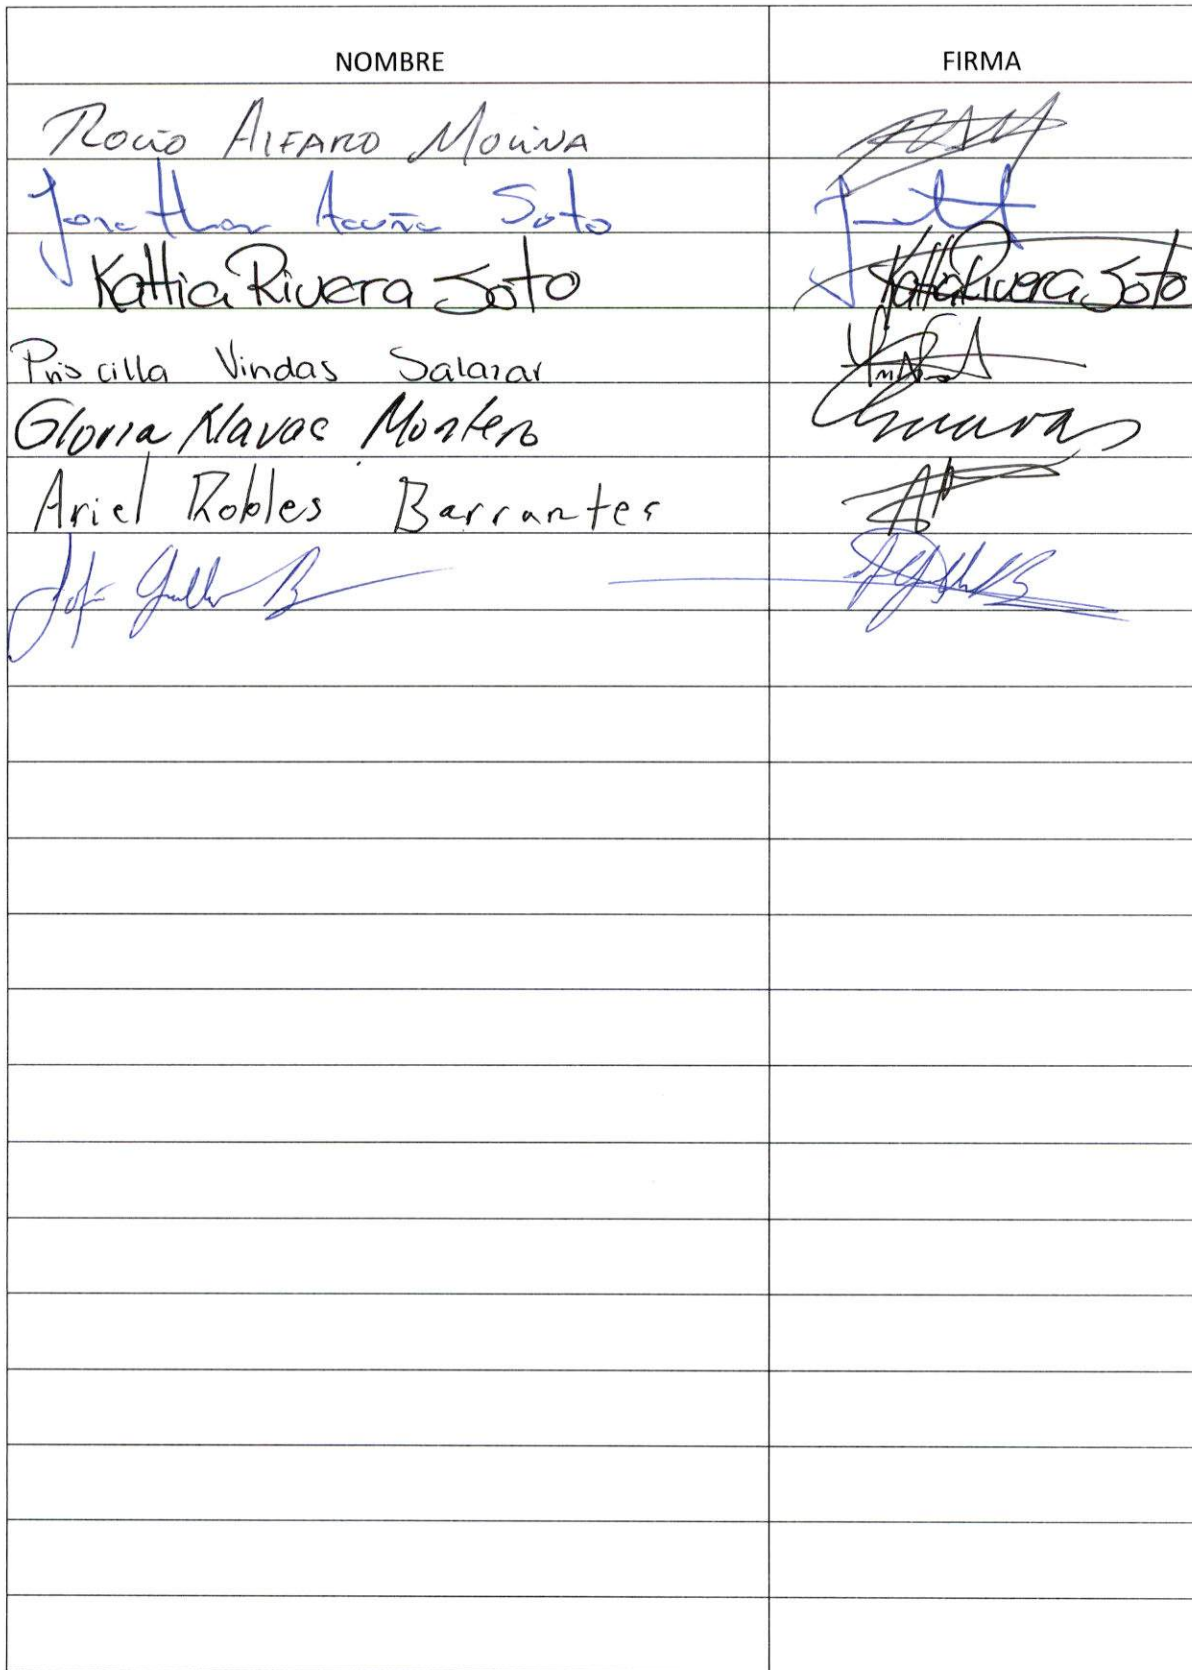 NOMBRE FIRMA
Rocío ALFARO MOLINA
Jonathan Acuña Soto
Kattia Rivera Soto Kattia Rivera Soto
Priscilla Vindas Salazar
Gloria Navas Montero
Ariel Robles Barrantes